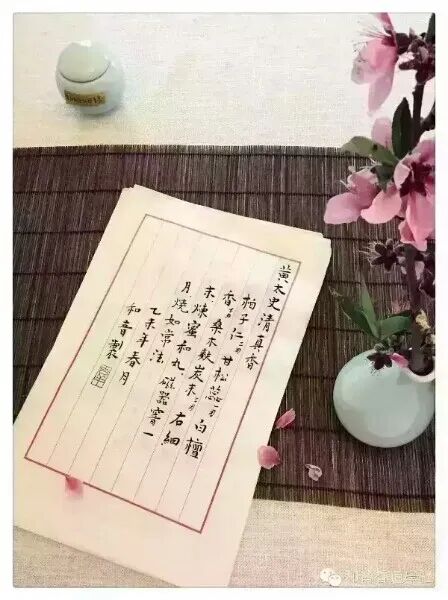 黃太史清真香
柏子仁二两 甘松蕊一两 白檀
香 桑木麩炭末 右細
末煉蜜和丸 磁器窨一
月燒如常法
乙未年春月
和音製